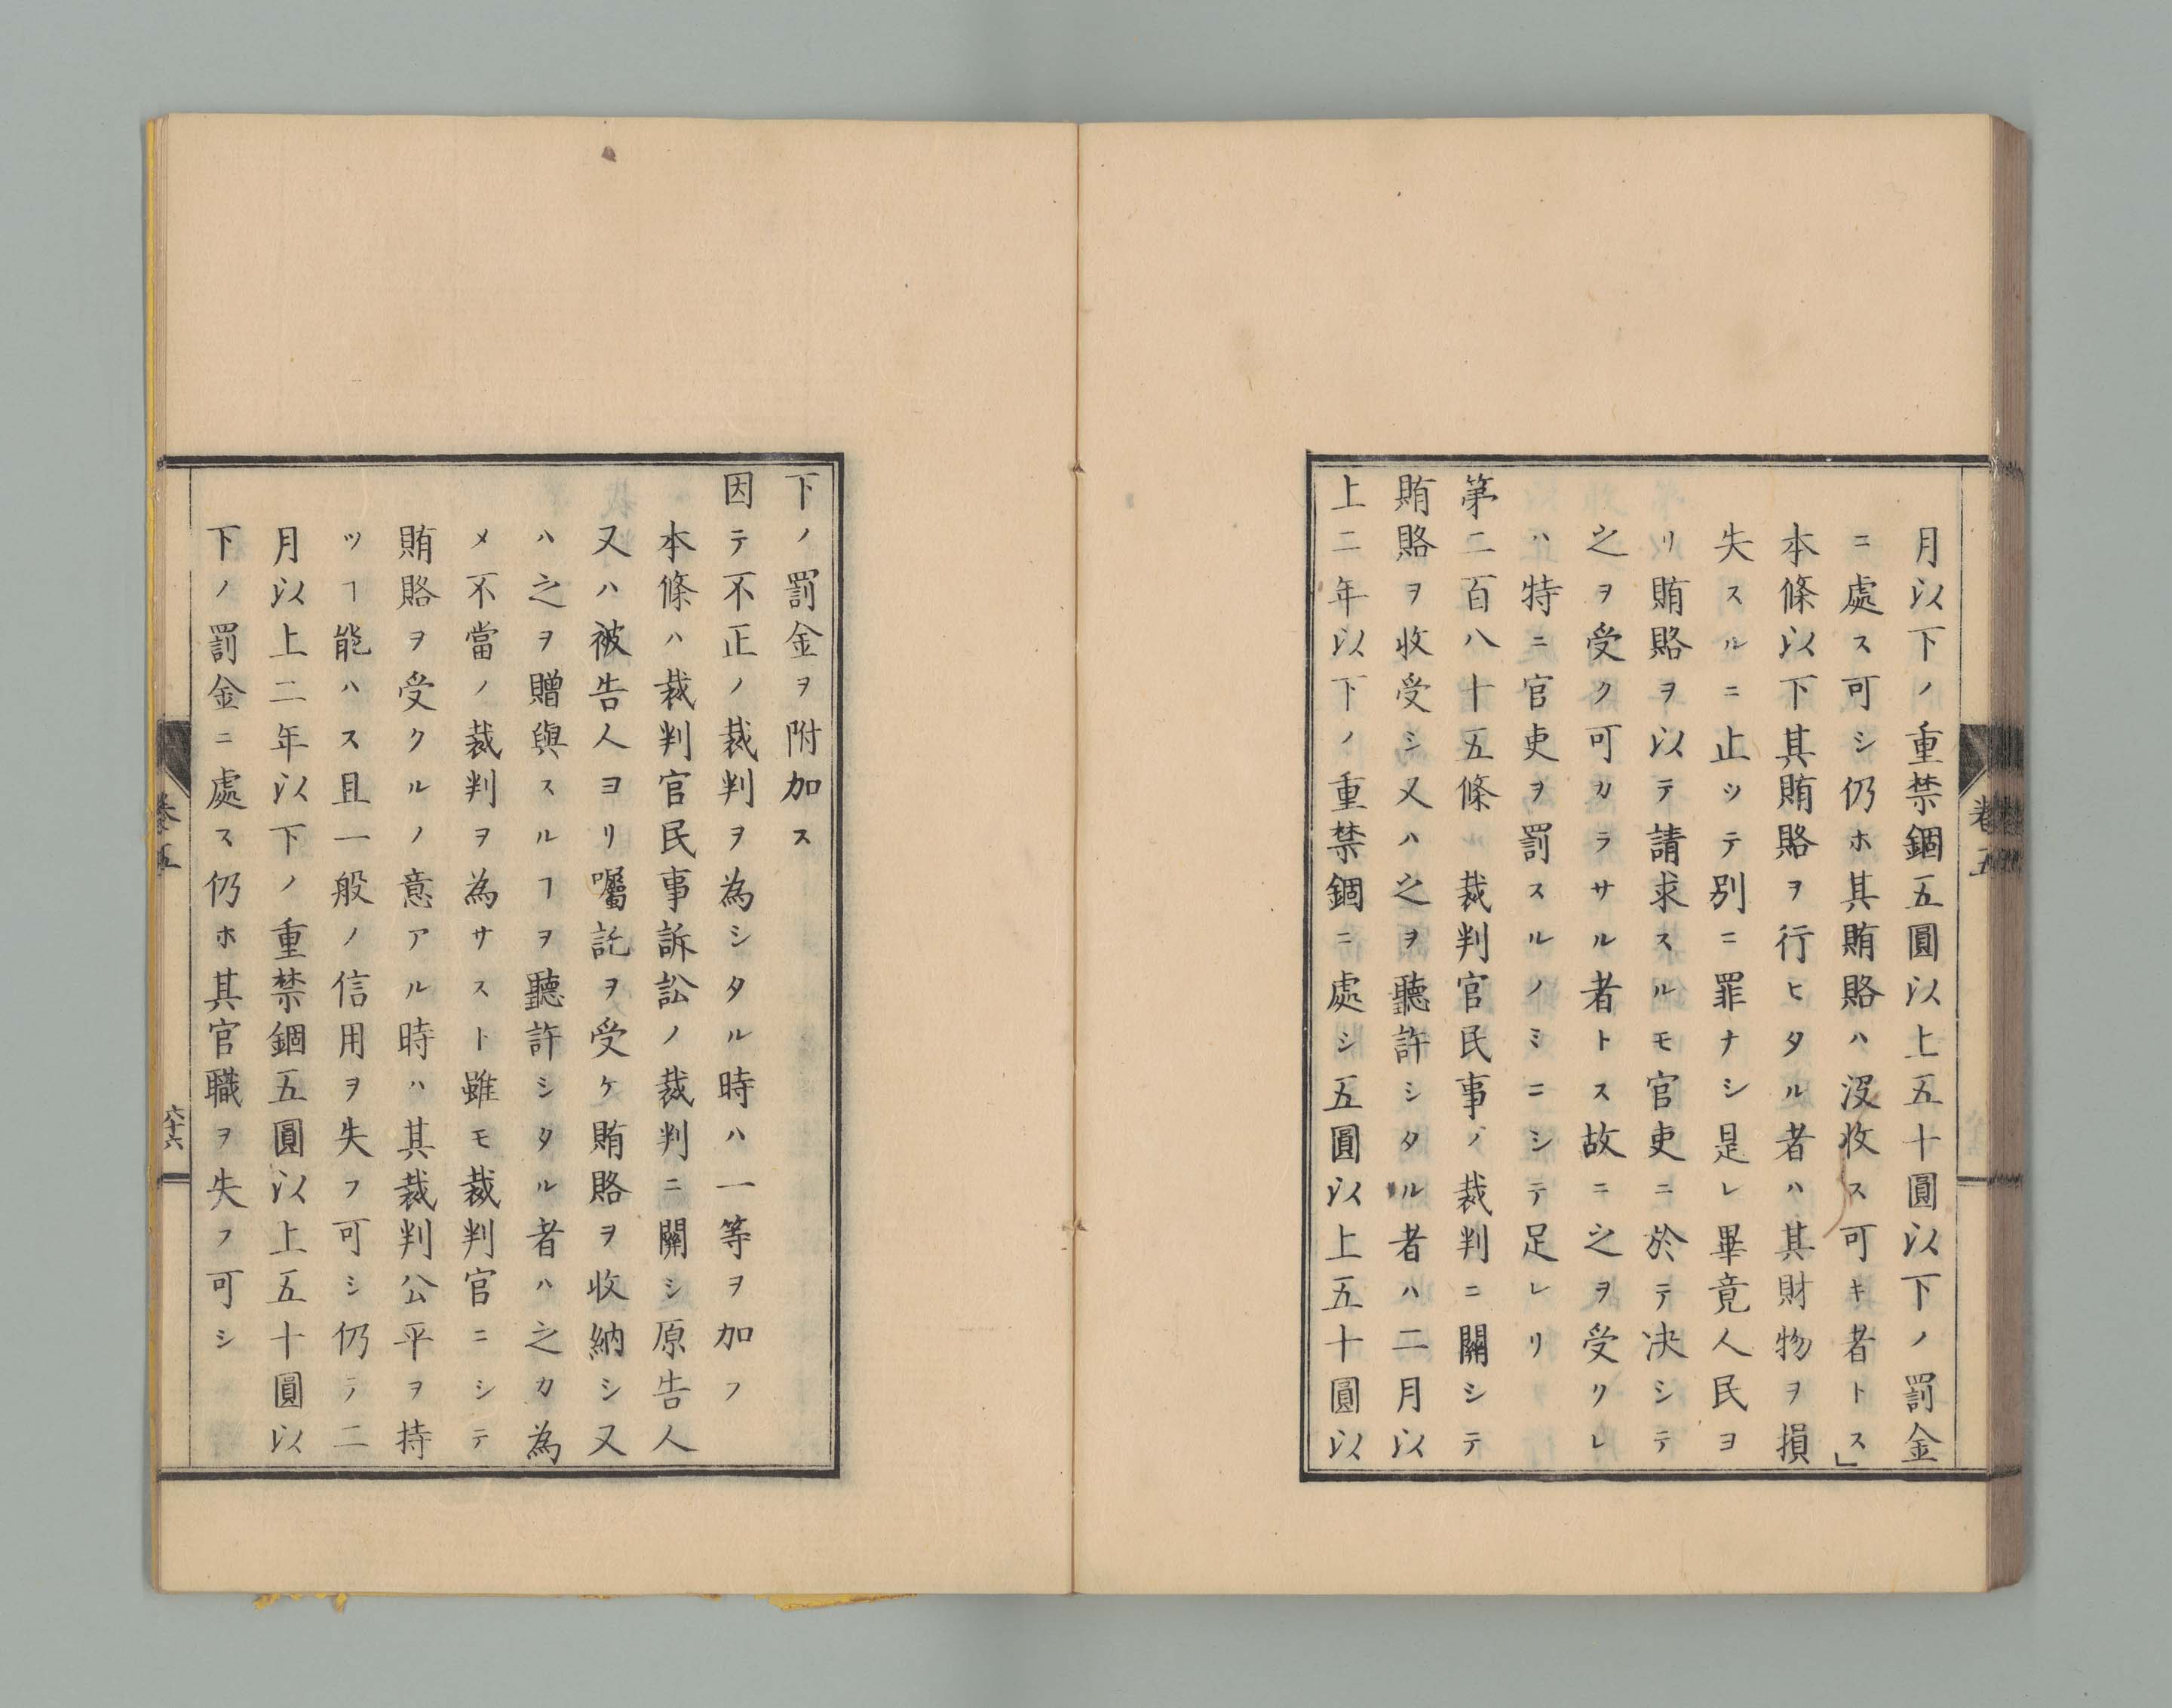 月以下ノ重禁錮五圓以上五十圓以下ノ罰金
ニ處ス可シ仍ホ其賄賂ハ沒收ス可キ者トス」
本條以下其賄賂ヲ行ヒタル者ハ其財物ヲ損
失スルニ止ツテ別ニ罪ナシ是レ畢竟人民ヨ
リ賄賂ヲ以テ請求スルモ官吏ニ於テ决シテ
之ヲ受ク可カラサル者トス故ニ之ヲ受クレ
ハ特ニ官吏ヲ罰スルノミニシテ足レリ
第二百八十五條　裁判官民事ノ裁判ニ關シテ
賄賂ヲ收受シ又ハ之ヲ聽許シタル者ハ二月以
上二年以下ノ重禁錮ニ處シ五圓以上五十圓以
卷五
下ノ罰金ヲ附加ス
因テ不正ノ裁判ヲ為シタル時ハ一等ヲ加フ
本條ハ裁判官民事訴訟ノ裁判ニ關シ原告人
又ハ被告人ヨリ囑託ヲ受ケ賄賂ヲ收納シ又
ハ之ヲ贈與スルヿヲ聽許シタル者ハ之カ為
メ不當ノ裁判ヲ為サスト雖モ裁判官ニシテ
賄賂ヲ受クルノ意アル時ハ其裁判公平ヲ持
ツヿ能ハス且一般ノ信用ヲ失フ可シ仍テ二
月以上二年以下ノ重禁錮五圓以上五十圓以
下ノ罰金ニ處ス仍ホ其官職ヲ失フ可シ
卷五
六十六